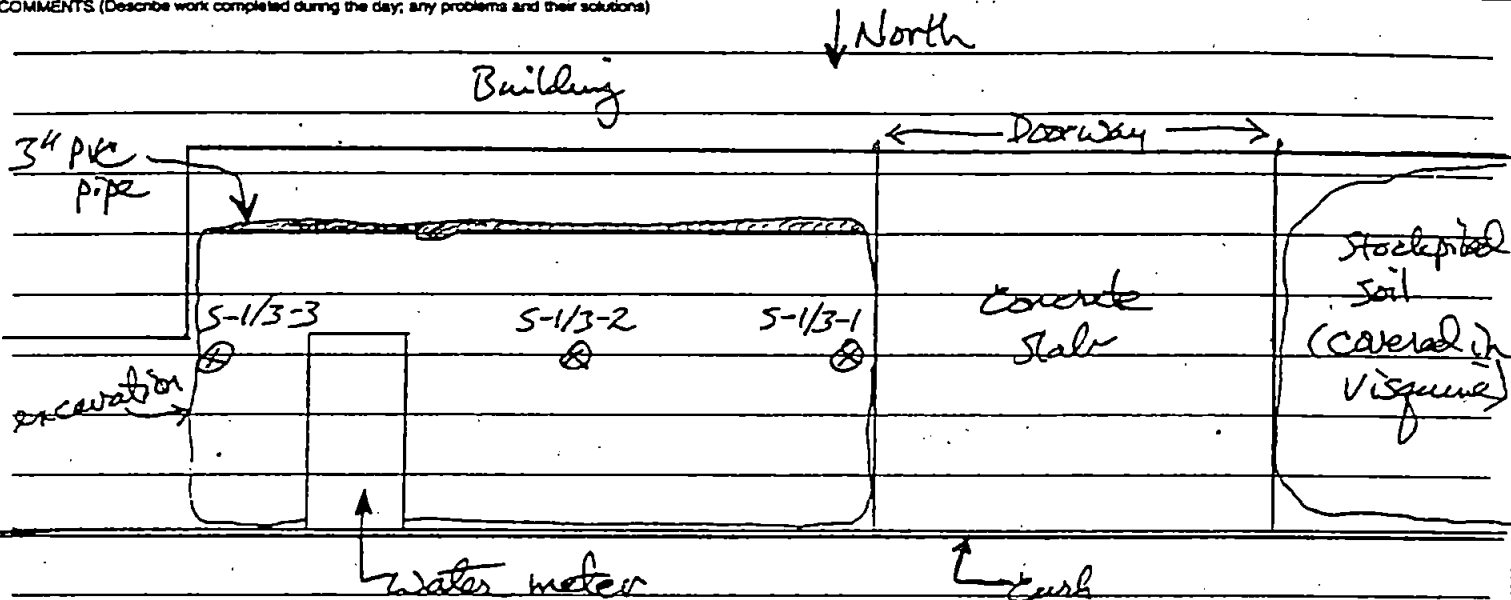 COMMENTS (Describe work completed during the day; any problems and their solutions)
North
Building
3" PVC
pipe
Doorway
Stockpiled
Soil
(covered in
Visquine)
S-1/3-3
S-1/3-2
S-1/3-1
Concrete
Slab
excavation
Water meter
Curb